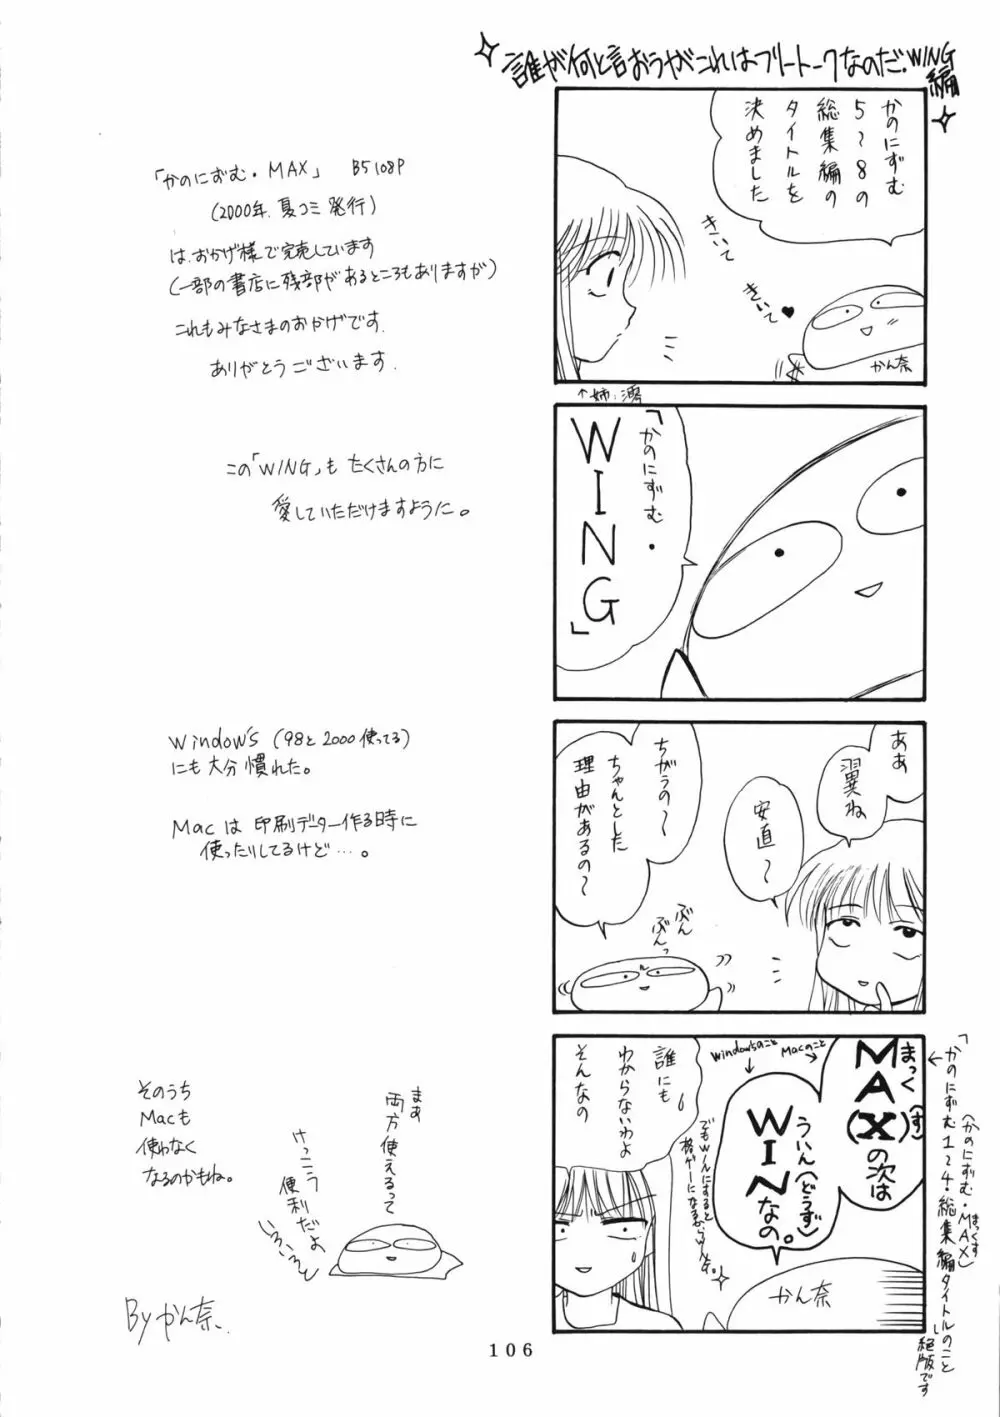 誰が何と言おうがこれはフリートークなのだ。WING編
かのにずむ
5〜8の
総集編の
タイトルを
決めました
きいて
きいて♥
かん奈
↑姉:澪
「かのにずむ・
WING」
ああ
翼ね
安直〜
ちがうの〜
ちゃんとした
理由があるの〜
ぶん
ぶんっ
まっく(す)
MA(X)の次は
Macのこと
Windowsのこと
ういん(どうず)
WINなの。
誰にも
わからないわよ
そんなの
でもWINにすると
かん奈
「かのにずむ1〜4・総集編タイトルのこと」
(かのにずむ・MAX)
まっくす
絶版です
「かのにずむ・MAX」 B5 108P
(2000年.夏コミ発行)
は、おかげ様で完売しています
(一部の書店に残部があるところもありますが)
これもみなさまのおかげです.
ありがとうございます.
この「WING」も たくさんの方に
愛していただけますように。
Window's (98と2000使ってる)
にも大分慣れた。
Macは 印刷データー作る時に
使ったりしてるけど…。
そのうち
Macも
使わなく
なるのかもね。
まぁ
両方使えるって
けっこう
便利だよ
いろいろと
By かん奈.
106